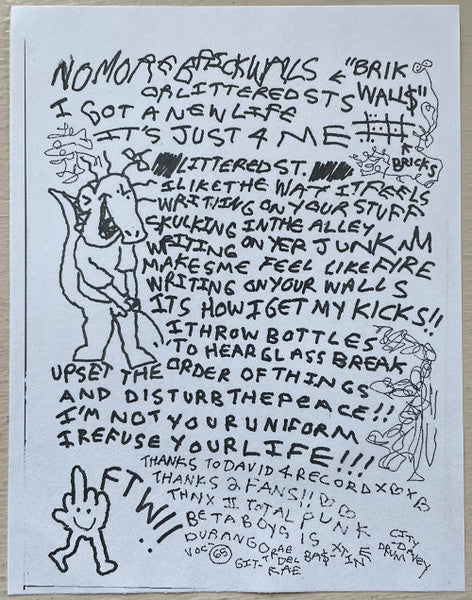 NO MORE BRICKWALLS ← "BRIK WALL$"
OR LITTERED STS
I GOT A NEW LIFE
IT'S JUST 4 ME
BRICKS
LITTERED ST.
I LIKE THE WAY IT FEELS
WRITING ON YOUR STUFF
SKULKING IN THE ALLEY
WRITING ON YER JUNK
MAKES ME FEEL LIKE FYRE
WRITING ON YOUR WALLS
ITS HOW I GET MY KICKS!!
I THROW BOTTLES
TO HEAR GLASS BREAK
UPSET THE ORDER OF THINGS
AND DISTURB THE PEACE!!
I'M NOT YOUR UNIFORM
I REFUSE YOUR LIFE!!!
FTW!!
THANKS TO DAVID 4 RECORD X♡X♡
THANKS 2 FANS!! ♡♡
THNX II TOTAL PUNK
BETA BOYS IS
DURANGO RAE
VOC-
GIT-
DEL BA$
RAE
CITY
DRUM